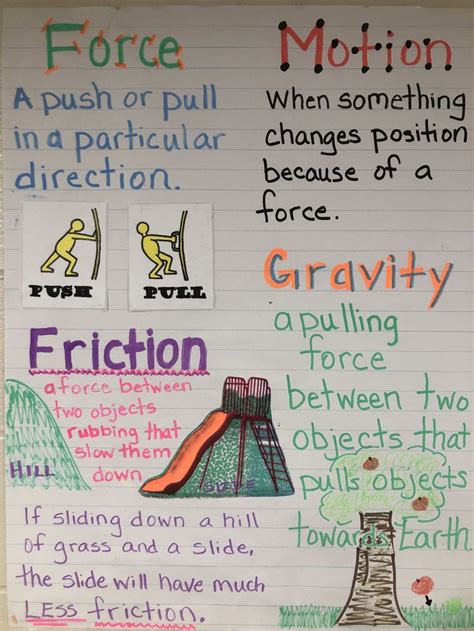 Force
A push or pull
in a particular
direction.
PUSH
PULL
Motion
When something
changes position
because of a
force.
Friction
a force between
two objects
rubbing that
slow them
down
HILL
SLIDE
If sliding down a hill
of grass and a slide,
the slide will have much
LESS friction.
Gravity
a pulling
force
between two
objects that
pulls objects
towards Earth.